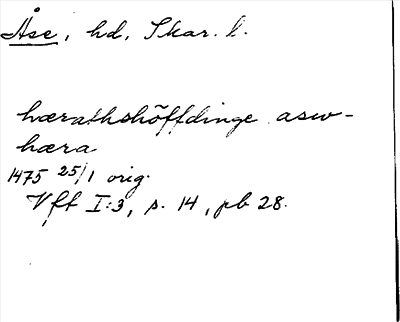 Åse, hd, Skar. l.
hærathshöffdinge asw-
hæra
1475 25/1 orig.
Vft I:3, s. 14, pb 28.